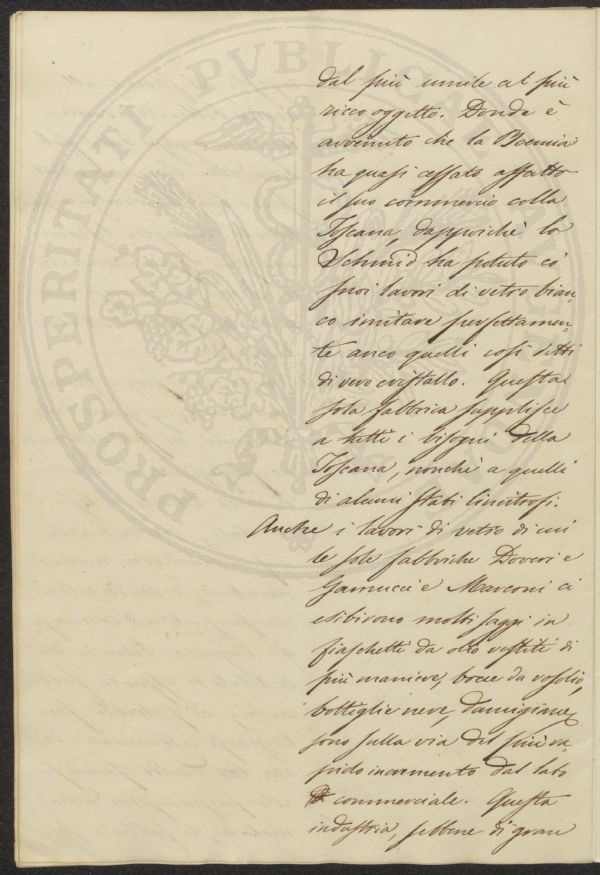 dal più umile al più
ricco oggetto. Donde è
avvenuto che la Boemia
ha quasi cessato affatto
il suo commercio colla
Toscana, dappoichè lo
Schmid ha potuto co'
suoi lavori di vetro bian¬
co imitare perfettamen¬
te anco quelli così detti
di vero cristallo. Questa
sola fabbrica supplisce
a tutti i bisogni della
Toscana, nonchè a quelli
di alcuni Stati limitrofi.
Anche i lavori di vetro di cui
le sole fabbriche Doveri e
Gannucci e Marconi ci
esibirono molti saggi in
fiaschetti da olio vestiti di
più maniere, bocce da rosolio,
bottiglie nere, damigiane,
sono sulla via del più ra¬
pido incremento dal lato
commerciale. Questa
industria, sebbene di gran
PROSPERITATI PVBLICAE